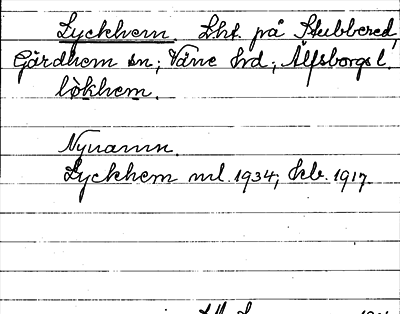 Lyckhem. Lht. på Stubbered,
Gärdhem sn; Väne hrd; Älfsborgs l.
lökhem.
Nynamn.
Lyckhem ml. 1934; kb. 1917.